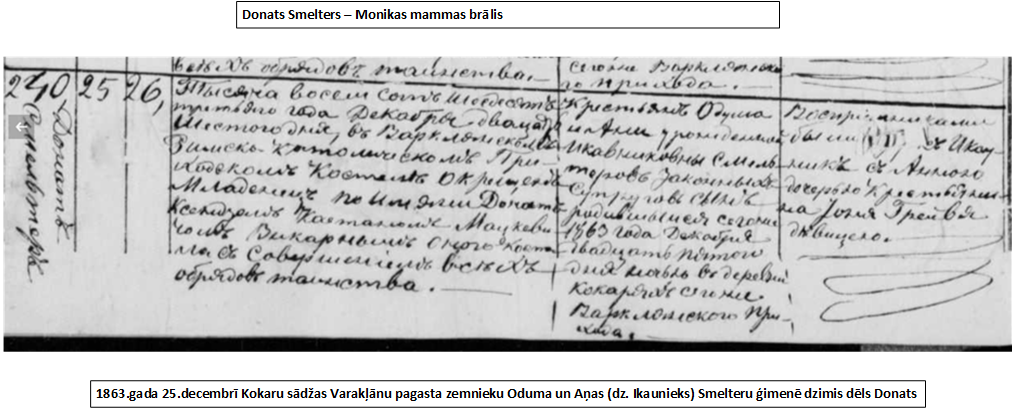 Donats Smelters – Monikas mammas brālis
всѣхъ обрядовъ таинства.
сегоже Варклянска-
го прихода.
240 25 26,
Донатъ
Смельтеръ
Тысяча восемь сотъ шестьдесятъ
третьяго года Декабря двадцать
шестого дня, въ Варклянскомъ
Римско-Католическомъ При-
ходскомъ Костелѣ окрещенъ
Младенецъ по имени Донатъ
Ксендзомъ Мацкеви
чемъ Викарнымъ оного Косте
ла съ совершеніемъ всѣхъ
обрядовъ таинства.
Крестьянъ Одума
и Анны урожденной
Икавниковны Смель
теровъ законныхъ
Супруговъ сынъ
родившійся сегоже
1863 года Декабря
двадцать пятого
дня въ деревни
Кокаряхъ сегоже
Варклянского При-
хода.
Воспріемниками
были съ
Анною
дочерью Крестьянин-
на
дѣвицею.
1863.gada 25.decembrī Kokaru sādžas Varakļānu pagasta zemnieku Oduma un Aņas (dz. Ikaunieks) Smelteru ģimenē dzimis dēls Donats